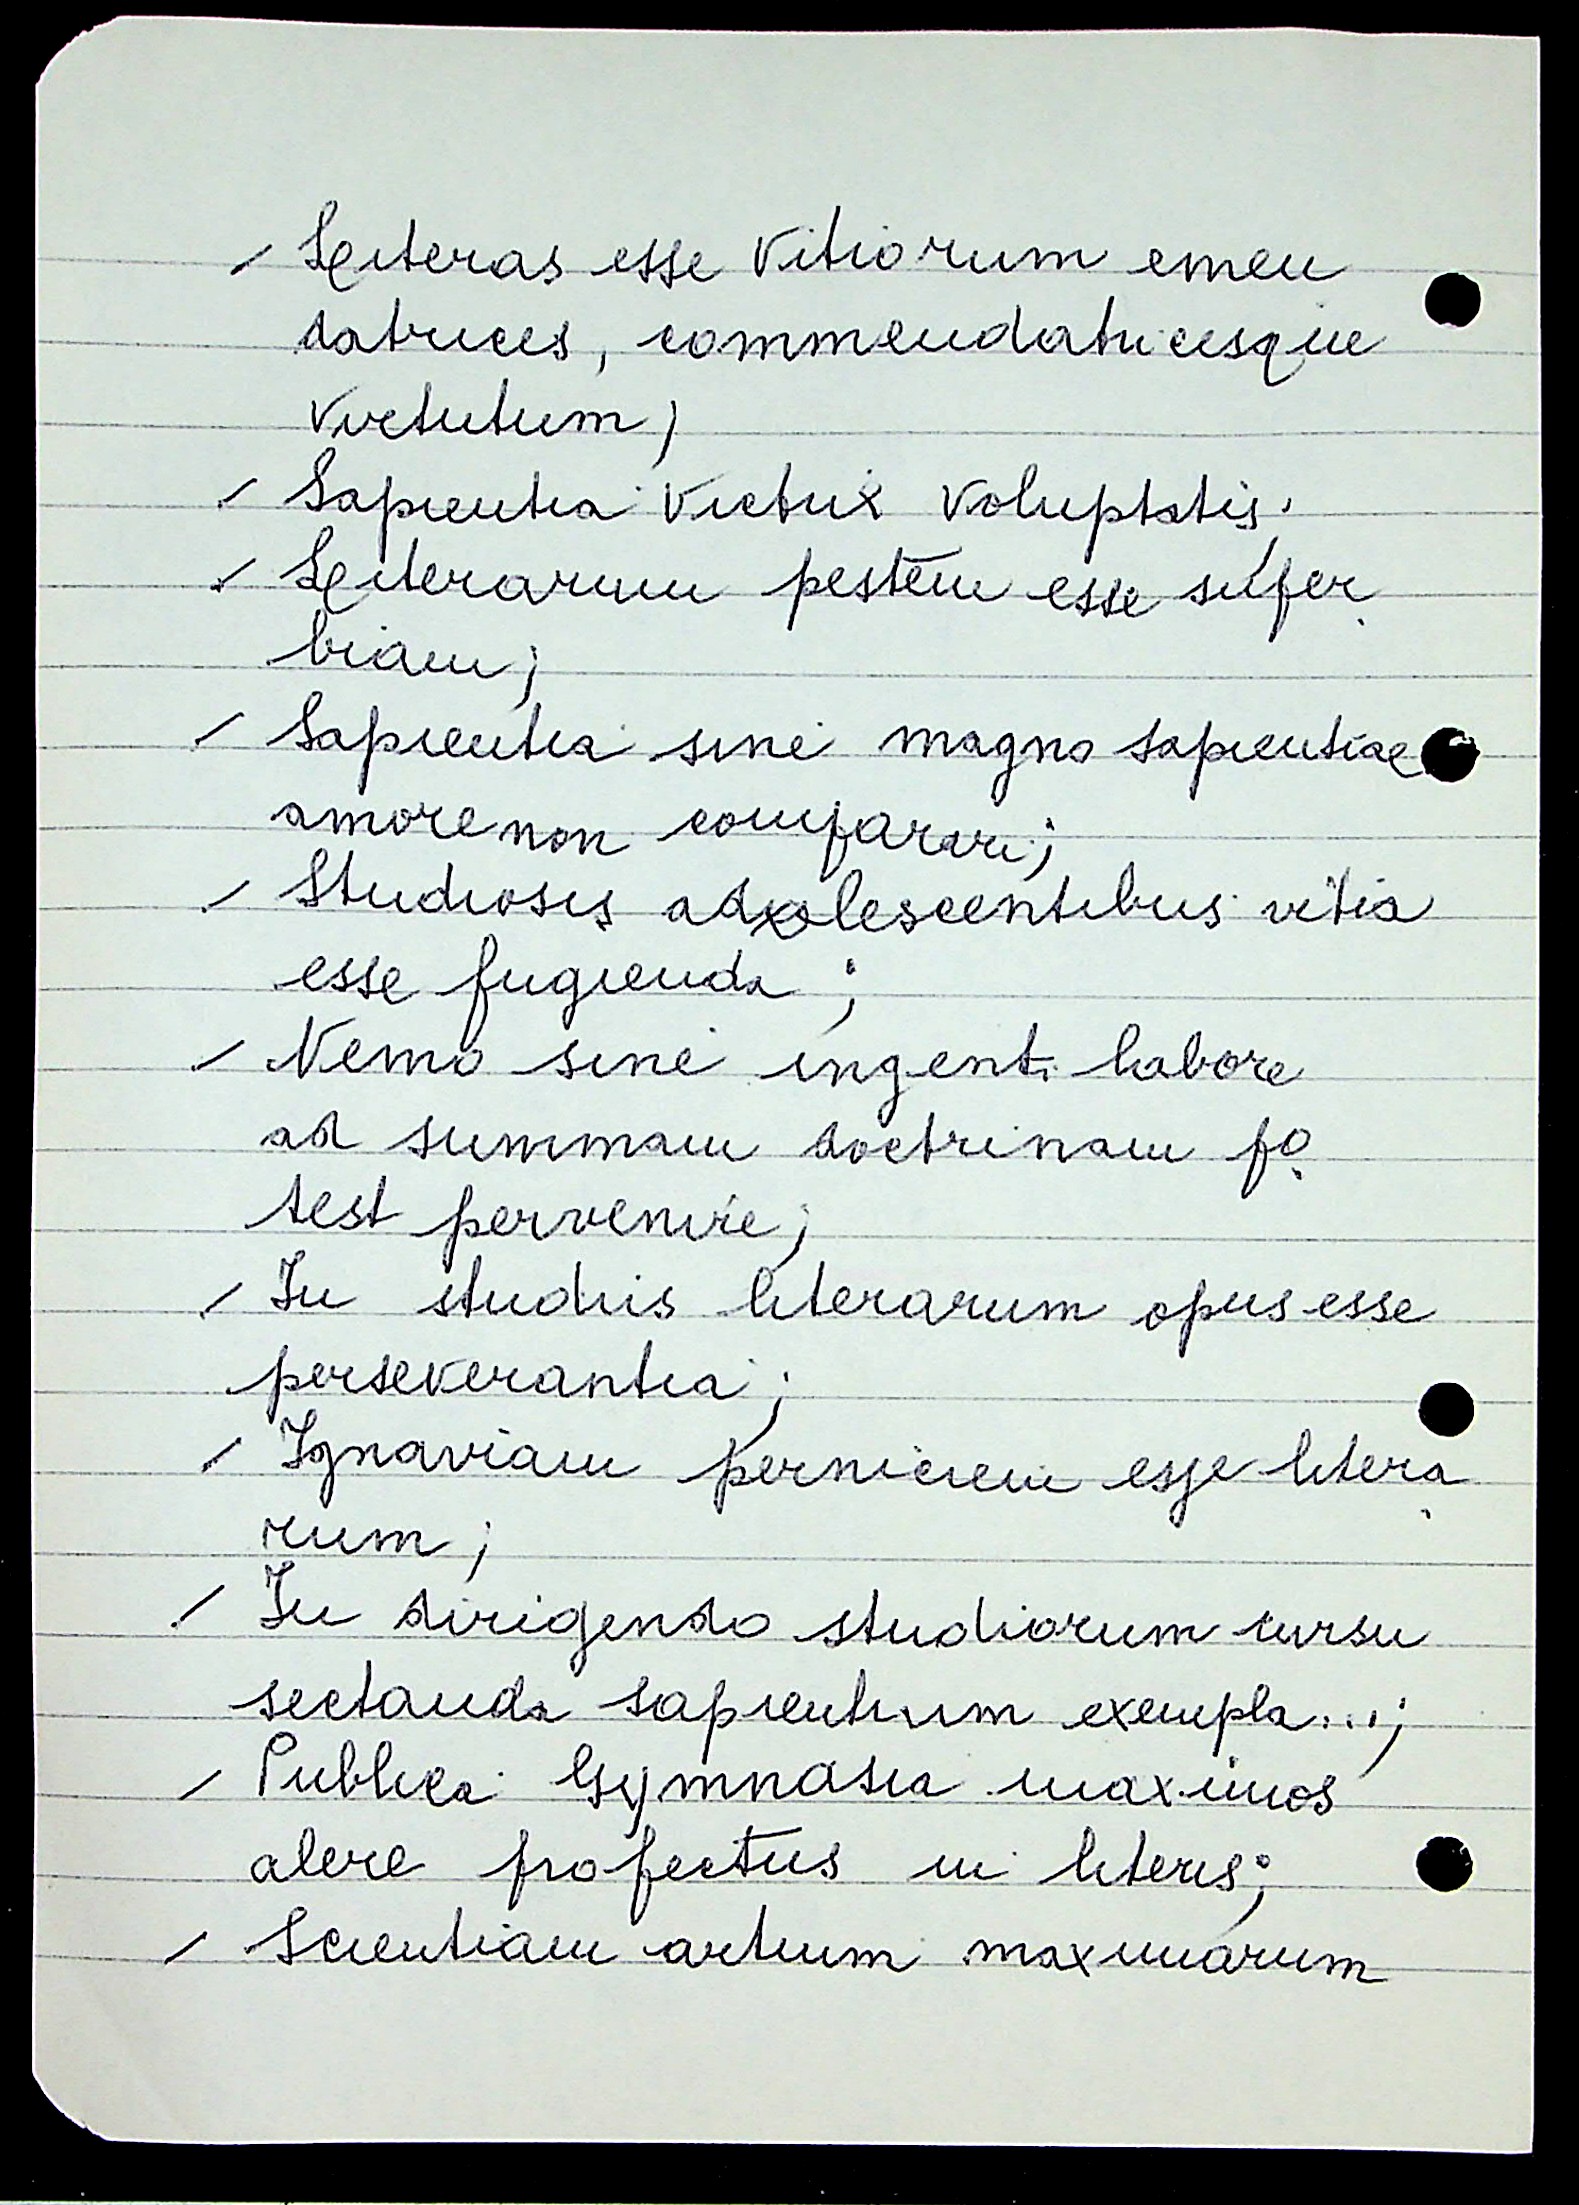 / Literas esse vitiorum emen
datrices, commendatricesque
virtutum;
/ Sapientia victrix voluptatis;
/ Literarum pestem esse super
biam;
/ Sapientia sine magno sapientiae
amore non comparari;
/ Studiosis adolescentibus vitia
esse fugienda;
/ Nemo sine ingenti labore
ad summam doctrinam po
test pervenire;
/ In studiis literarum opus esse
perseverantia;
/ Ignaviam perniciem esse litera
rum;
/ In dirigendo studiorum cursu
sectanda sapientium exempla...;
/ Publica Gymnasia maximos
alere profectus in literis;
/ Scientiam artium maximarum